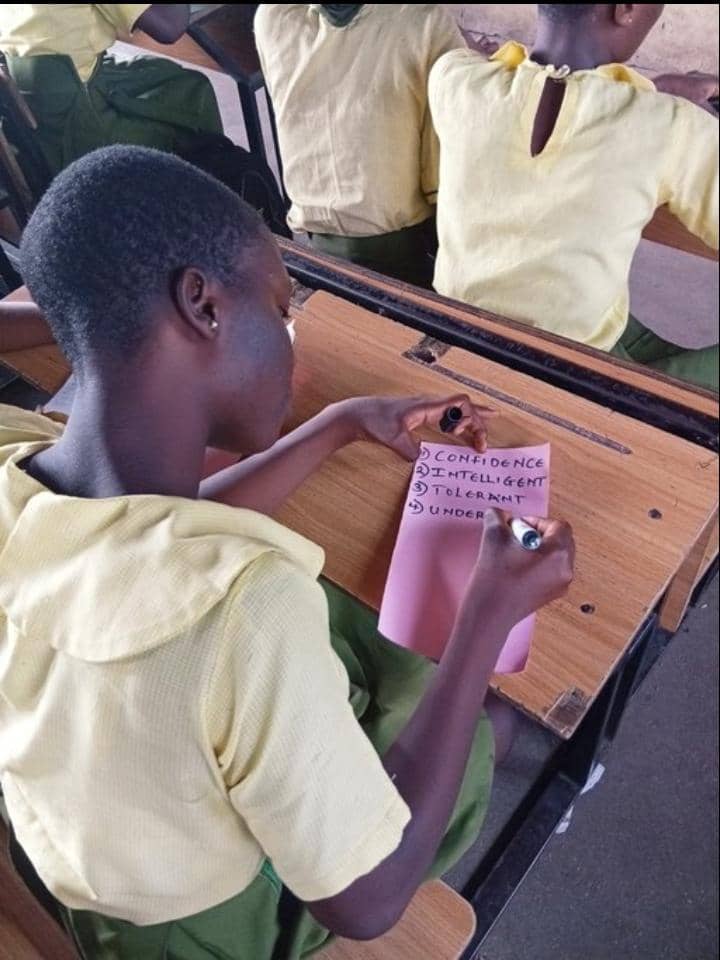 1) CONFIDENCE
2) INTELLIGENT
3) TOLERANT
4) UNDER